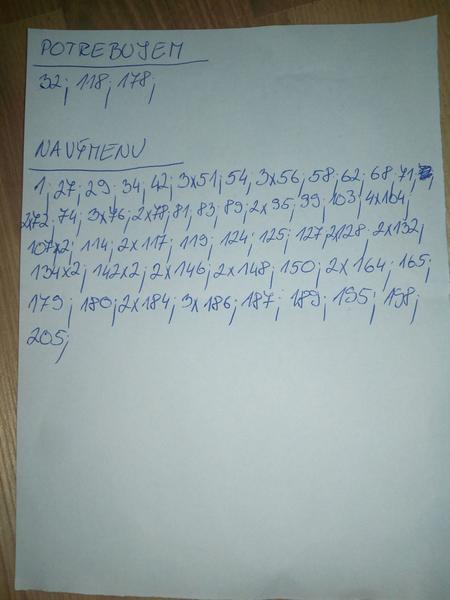 POTREBUJEM
32; 118; 178;
NAVÝMENU
1; 27; 29; 34; 42; 3x51; 54; 3x56; 58; 62; 68; 71;
2x72; 74; 3x76; 2x78; 81; 83; 89; 2x95; 99; 103; 4x104;
107x2; 114; 2x117; 119; 124; 125; 127; 2x128; 2x132;
134x2; 142x2; 2x146; 2x148; 150; 2x164; 165;
179; 180; 2x184; 3x186; 187; 189; 195; 198;
205;